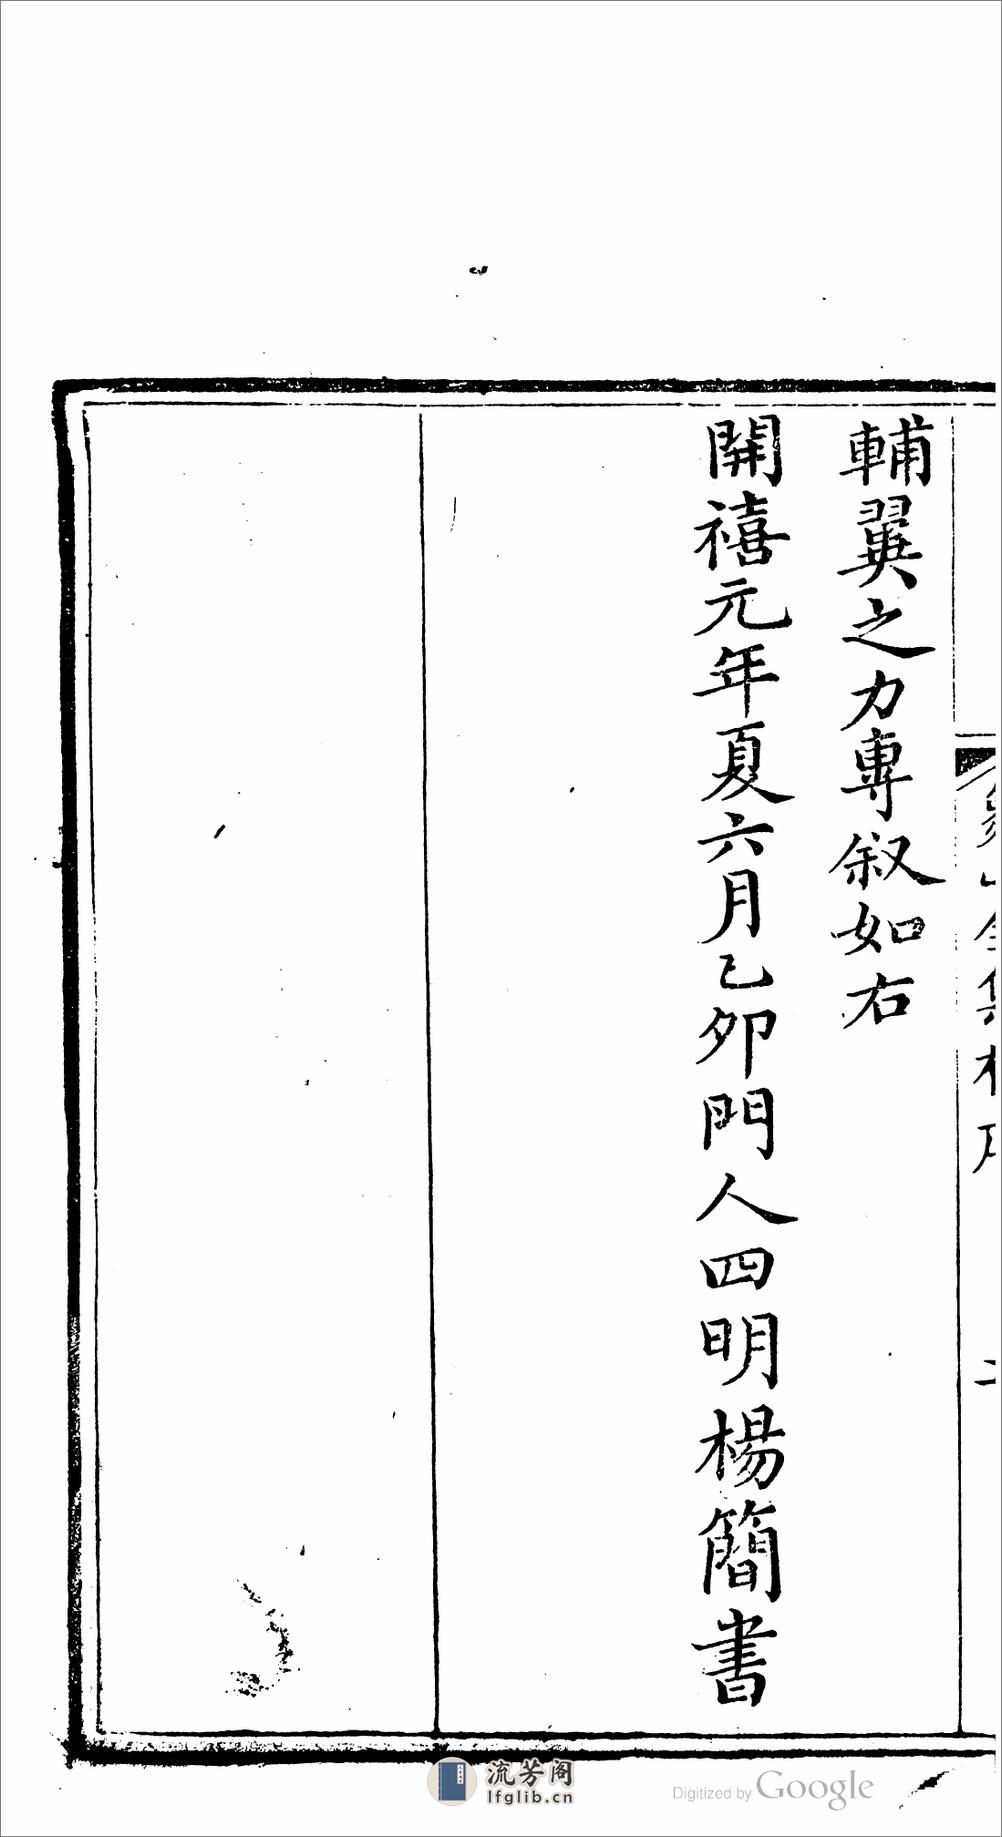 輔翼之力專叙如右
開禧元年夏六月乙夘門人四明楊簡書
流芳阁
lfglib.cn
Digitized by Google